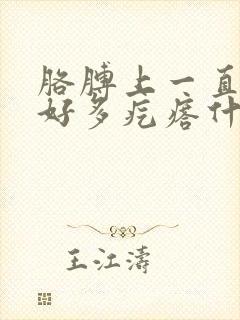 胳膊上一直
好多疙瘩什
王江涛